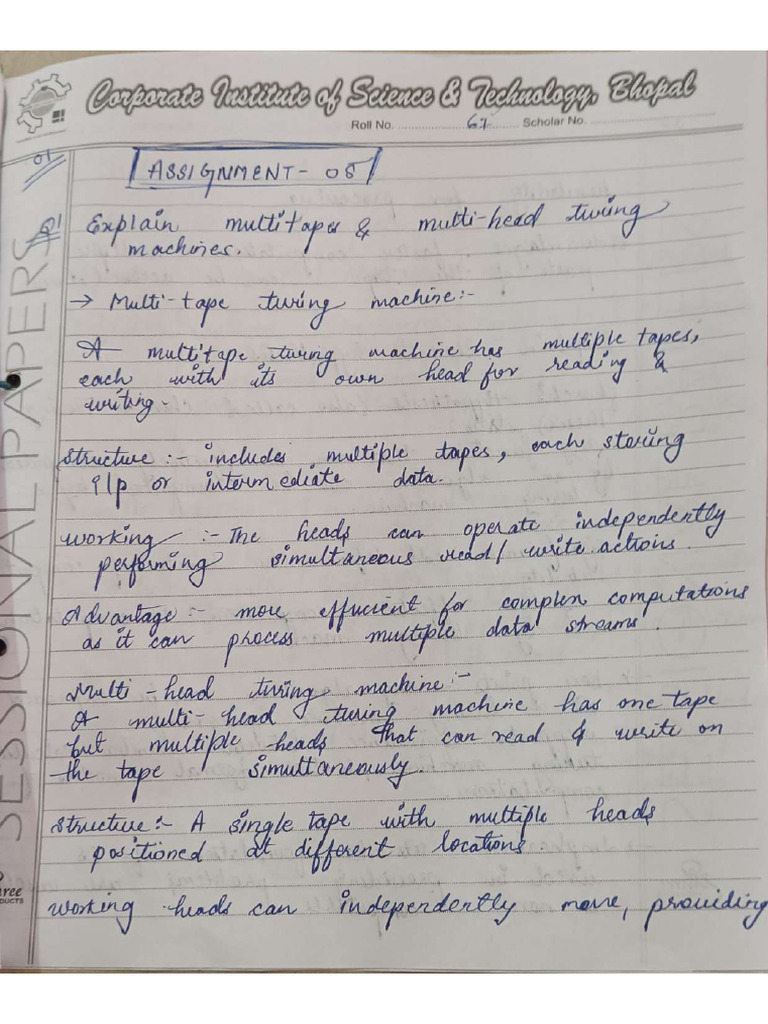 Corporate Institute of Science & Technology, Bhopal
Roll No. 67 Scholar No.
01
ASSIGNMENT - 05
Q1 Explain multitapes & multi-head turing
machines.
→ Multi-tape turing machine:-
A multitape turing machine has multiple tapes,
each with its own head for reading &
writing.
Structure :- includes multiple tapes, each storing
i/p or intermediate data.
Working :- The heads can operate independently
performing simultaneous read/write actions.
Advantage :- more efficient for complex computations
as it can process multiple data streams.
Multi-head turing machine :-
A multi-head turing machine has one tape
but multiple heads that can read & write on
the tape simultaneously.
Structure :- A single tape with multiple heads
positioned at different locations
Working heads can independently move, providing
SESSIONAL PAPERS